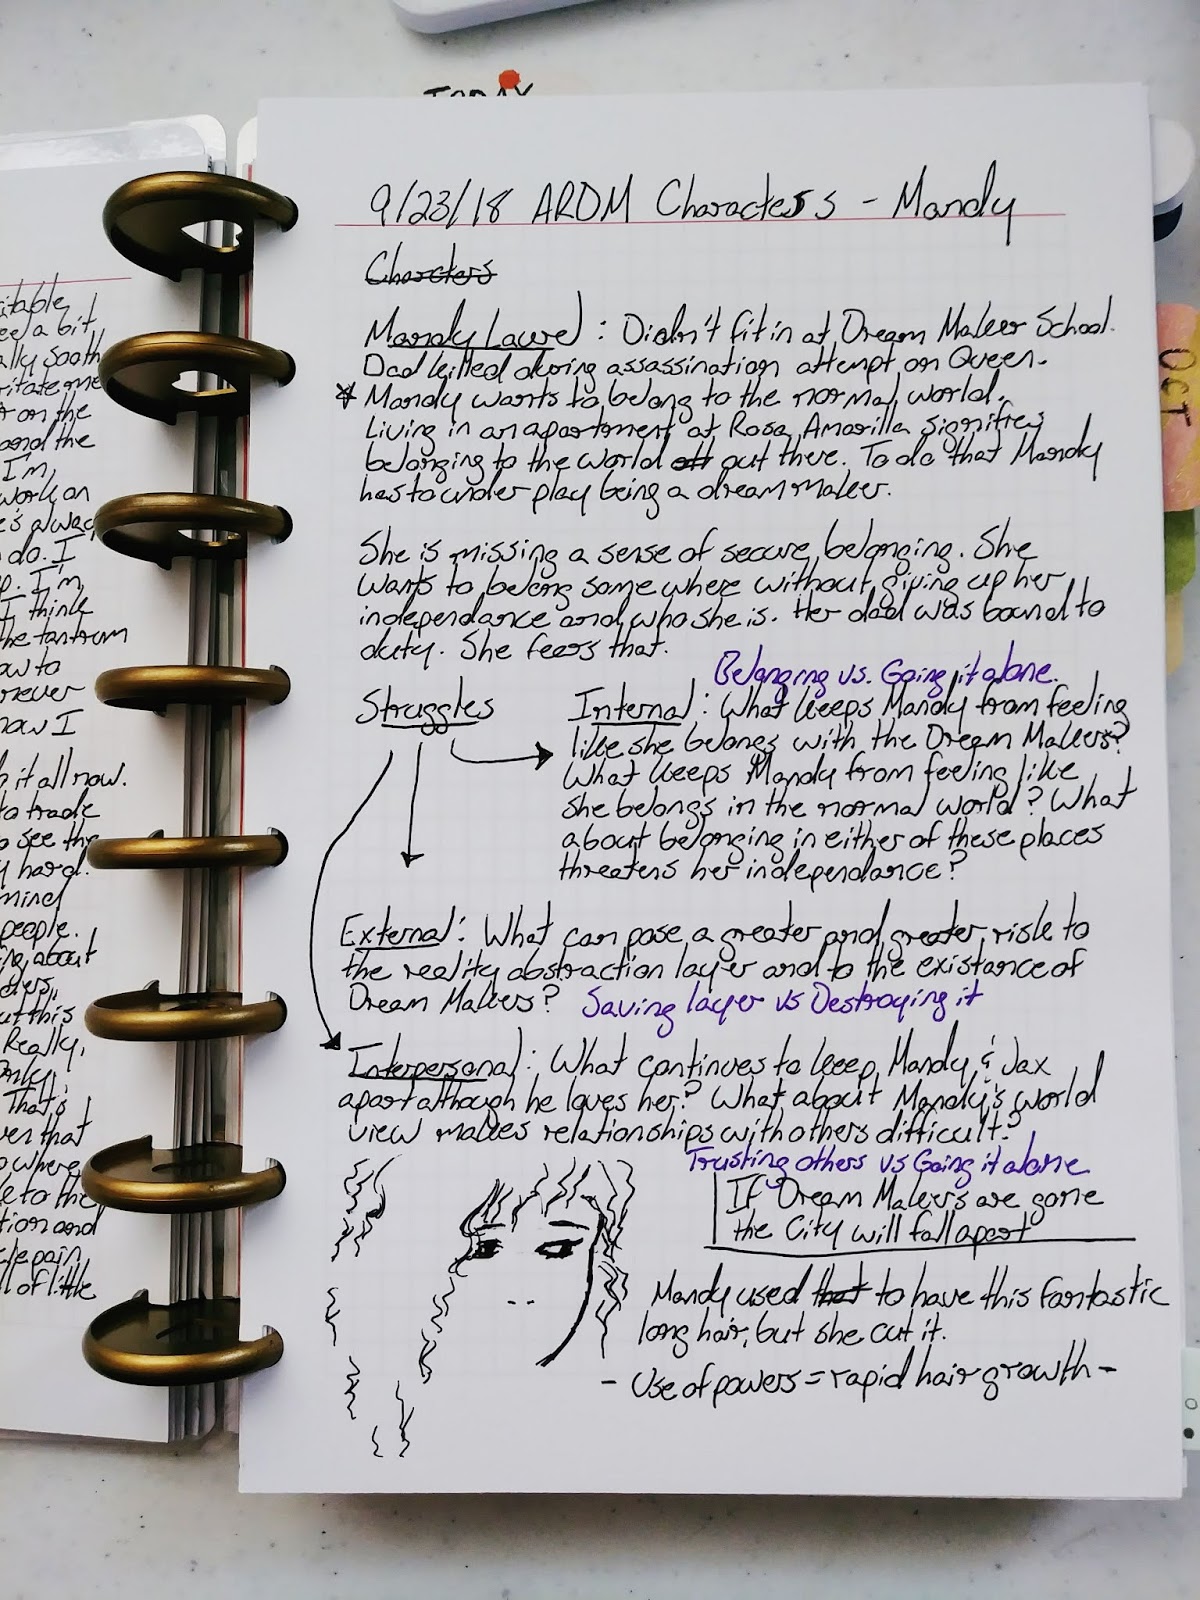 TODAY
9/23/18 ARDM Characters - Mandy
Characters
Mandy Laurel : Didn't fit in at Dream Maker School.
Dad killed during assassination attempt on Queen.
* Mandy wants to belong to the normal world.
Living in an apartment at Rosa Amarilla signifies
belonging to the world out there. To do that Mandy
has to under play being a dream maker.
She is missing a sense of secure belonging. She
wants to belong some where without giving up her
independance and who she is. Her dad was bound to
duty. She fears that.
Belonging vs. Going it alone.
Struggles
Internal: What keeps Mandy from feeling
like she belongs with the Dream Makers?
What keeps Mandy from feeling like
she belongs in the normal world? What
about belonging in either of these places
threatens her independance?
External: What can pose a greater and greater risk to
the reality abstraction layer and to the existance of
Dream Makers? Saving layer vs Destroying it
Interpersonal: What continues to keep Mandy & Jax
apart although he loves her? What about Mandy's world
view makes relationships with others difficult?
Trusting others vs Going it alone
If Dream Makers are gone
the City will fall apart
Mandy used that to have this fantastic
long hair, but she cut it.
- Use of powers = rapid hair growth -
OCT
itable,
ee a bit
ally sooth
ritate me
r on the
and the
I'm
work on
e's alway
do. I
p. I'm
I think
the tantrum
ow to
now I
it all now.
to trade
o see the
y hard.
mind
people.
ing about
ut this
Really,
That's
ven that
o where
le to the
tion and
le pain,
ll of little